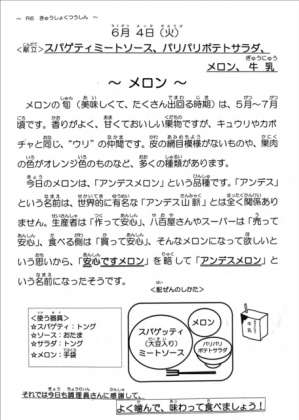 ～ R6 きゅうしょくつうしん ～
6月4日(火)
<献立>スパゲティミートソース、パリパリポテトサラダ、
メロン、牛乳
～ メロン ～
メロンの旬（美味しくて、たくさん出回る時期）は、5月～7月
頃です。香りがよく、甘くておいしい果物ですが、キュウリやカボ
チャと同じ、“ウリ”の仲間です。皮の網目模様がないものや、果肉
の色がオレンジ色のものなど、多くの種類があります。
今日のメロンは、「アンデスメロン」という品種です。「アンデス」
という名前は、世界的に有名な「アンデス山脈」とは全く関係あり
ません。生産者は「作って安心」、八百屋さんやスーパーは「売って
安心」、食べる側は「買って安心」、そんなメロンになって欲しいと
いう思いから、「安心ですメロン」を略して「アンデスメロン」と
いう名前になったそうです。
<配ぜんのしかた>
<使う器具>
☆スパゲティ：トング
☆ソース：おたま
☆サラダ：トング
☆メロン：手袋
メロン
スパゲッティ
(大豆入り)
ミートソース
パリパリ
ポテトサラダ
それでは今日も調理員さんに感謝して、
よく噛んで、味わって食べましょう！